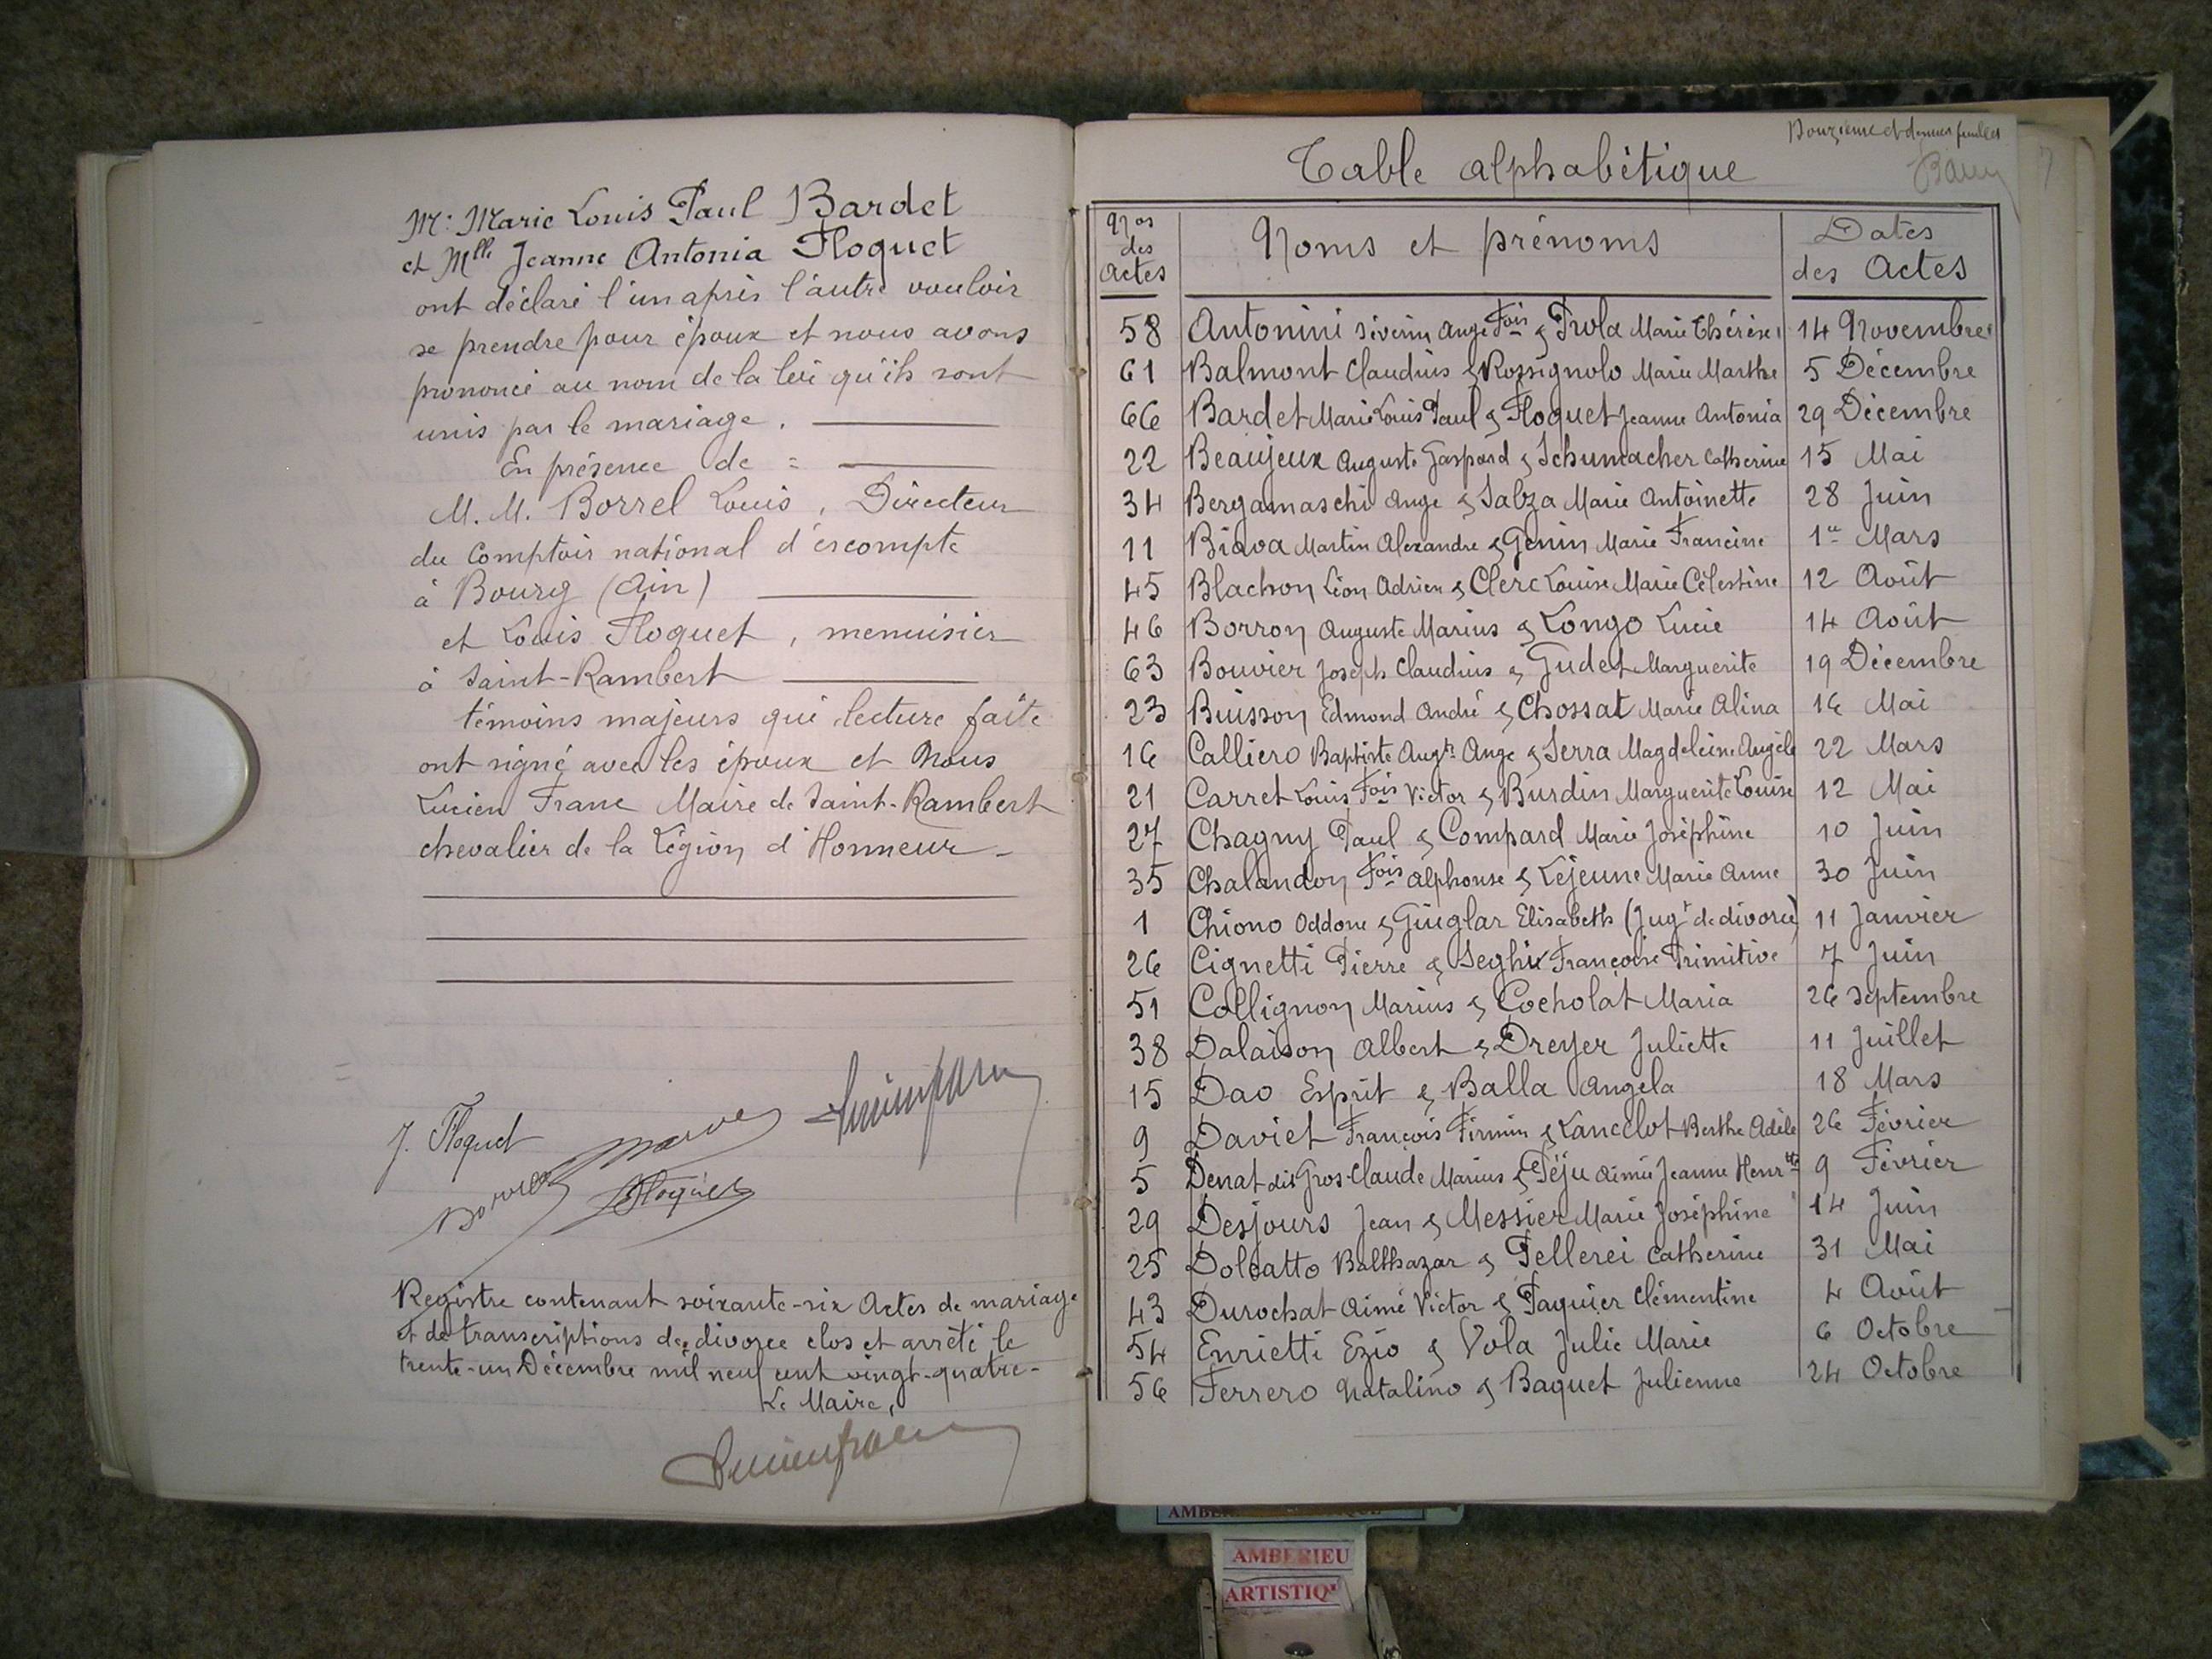 Mr. Marie Louis Paul Bardet
et Mlle Jeanne Antonia Floquet
ont déclaré l'un après l'autre vouloir
se prendre pour époux et nous avons
prononcé au nom de la loi qu'ils sont
unis par le mariage.
En présence de =
M. M. Borrel Louis, Directeur
du Comptoir national d'escompte
à Bourg (Ain)
et Louis Floquet, menuisier
à Saint-Rambert
témoins majeurs qui lecture faite
ont signé avec les époux et Nous
Lucien Franc Maire de Saint-Rambert
chevalier de la Légion d'Honneur -
J. Floquet
Borrel
Floquet
Registre contenant soixante-six Actes de mariage
et de transcriptions de divorce clos et arrêté le
trente-un Décembre mil neuf cent vingt-quatre -
Le Maire,
Douzième et dernier feuillet
Table alphabétique
Nos des Actes
Noms et prénoms
Dates des Actes
58 Antonini Séverin Ange Fois & Frola Marie Thérèse 14 Novembre
61 Balmont Claudius & Rossignolo Marie Marthe 5 Décembre
66 Bardet Marie Louis Paul & Floquet Jeanne Antonia 29 Décembre
22 Beaujeux Auguste Gaspard & Schumacher Catherine 15 Mai
34 Bergamaschi Ange & Salza Marie Antoinette 28 Juin
11 Biava Martin Alexandre & Genin Marie Francine 1er Mars
45 Blachon Léon Adrien & Clerc Louise Marie Célestine 12 Août
46 Borron Auguste Marius & Longo Lucie 14 Août
63 Bouvier Joseph Claudius & Gudet Marguerite 19 Décembre
23 Buisson Edmond André & Chossat Marie Alina 16 Mai
16 Calliero Baptiste Augte Ange & Serra Magdeleine Angèle 22 Mars
21 Carret Louis Fois Victor & Burdin Marguerite Louise 12 Mai
27 Chagny Paul & Compard Marie Joséphine 10 Juin
35 Chalandon Fois Alphonse & Lejeune Marie Anne 30 Juin
1 Chiono Oddone & Giuglar Elisabeth (Jugt de divorce) 11 Janvier
26 Cignetti Pierre & Françoise Primitive 7 Juin
51 Collignon Marius & Cocholat Maria 26 Septembre
38 Dalaison Albert & Dreyer Juliette 11 Juillet
15 Dao Esprit & Balla Angela 18 Mars
9 Daviet François Firmin & Lancelot Berthe Adèle 26 Février
5 Denat dit Gros-Claude Marius & Péju Aimée Jeanne Henrtte 9 Février
29 Desjours Jean & Messier Marie Joséphine 14 Juin
25 Dolcatto Balthazar & Pellerei Catherine 31 Mai
43 Durochat Aimé Victor & Paquier Clémentine 4 Août
54 Enrietti Ezio & Vola Julie Marie 6 Octobre
56 Ferrero Natalino & Baquet Julienne 24 Octobre
AMBERIEU
ARTISTIQ